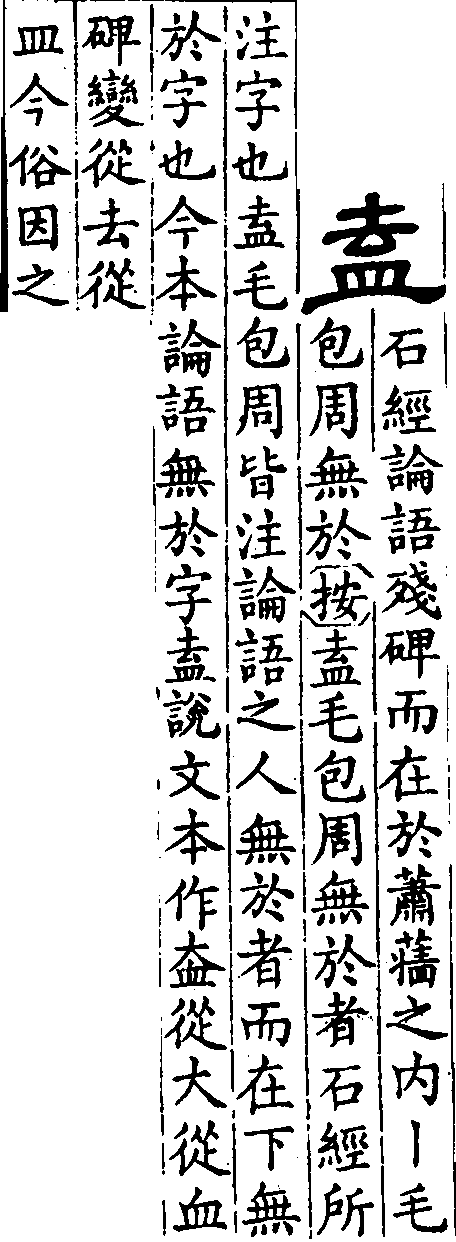 盍
石經論語殘碑而在於蕭蘠之内丨毛
包周無於〔按〕盍毛包周無於者石經所
注字也盍毛包周皆注論語之人無於者而在下無
於字也今本論語無於字盍說文本作盇從大從血
碑變從去從
皿今俗因之